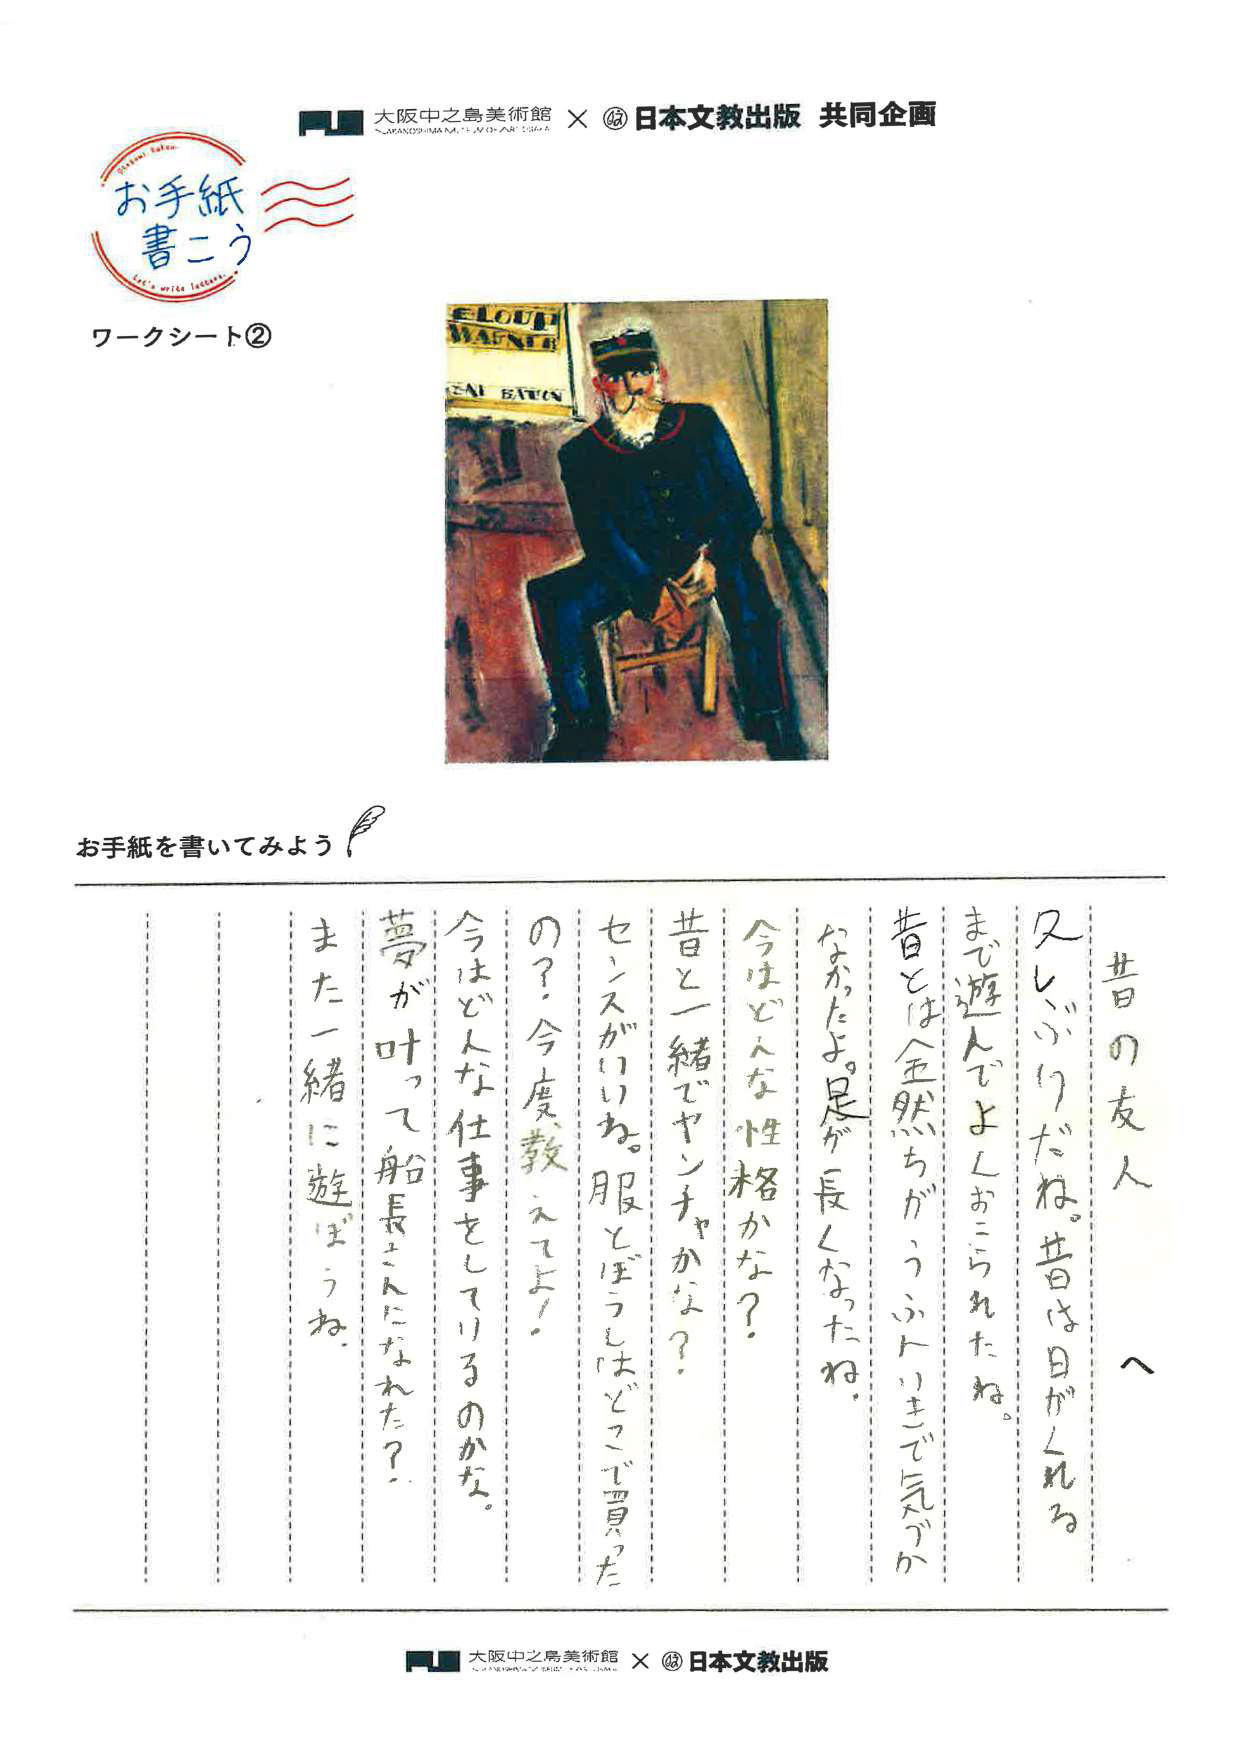 大阪中之島美術館 × 日文 日本文教出版 共同企画
お手紙
書こう
Let's write letters.
ワークシート②
お手紙を書いてみよう
昔の友人 へ
久しぶりだね。昔は日がくれる
まで遊んでよくおこられたね。
昔とは全然ちがうふんいきで気づか
なかったよ。足が長くなったね。
今はどんな性格かな？
昔と一緒でヤンチャかな？
センスがいいね。服とぼうしはどこで買った
の？今度教えてよ！
今はどんな仕事をしているのかな。
夢が叶って船長さんになれた？
また一緒に遊ぼうね。
大阪中之島美術館 × 日文 日本文教出版